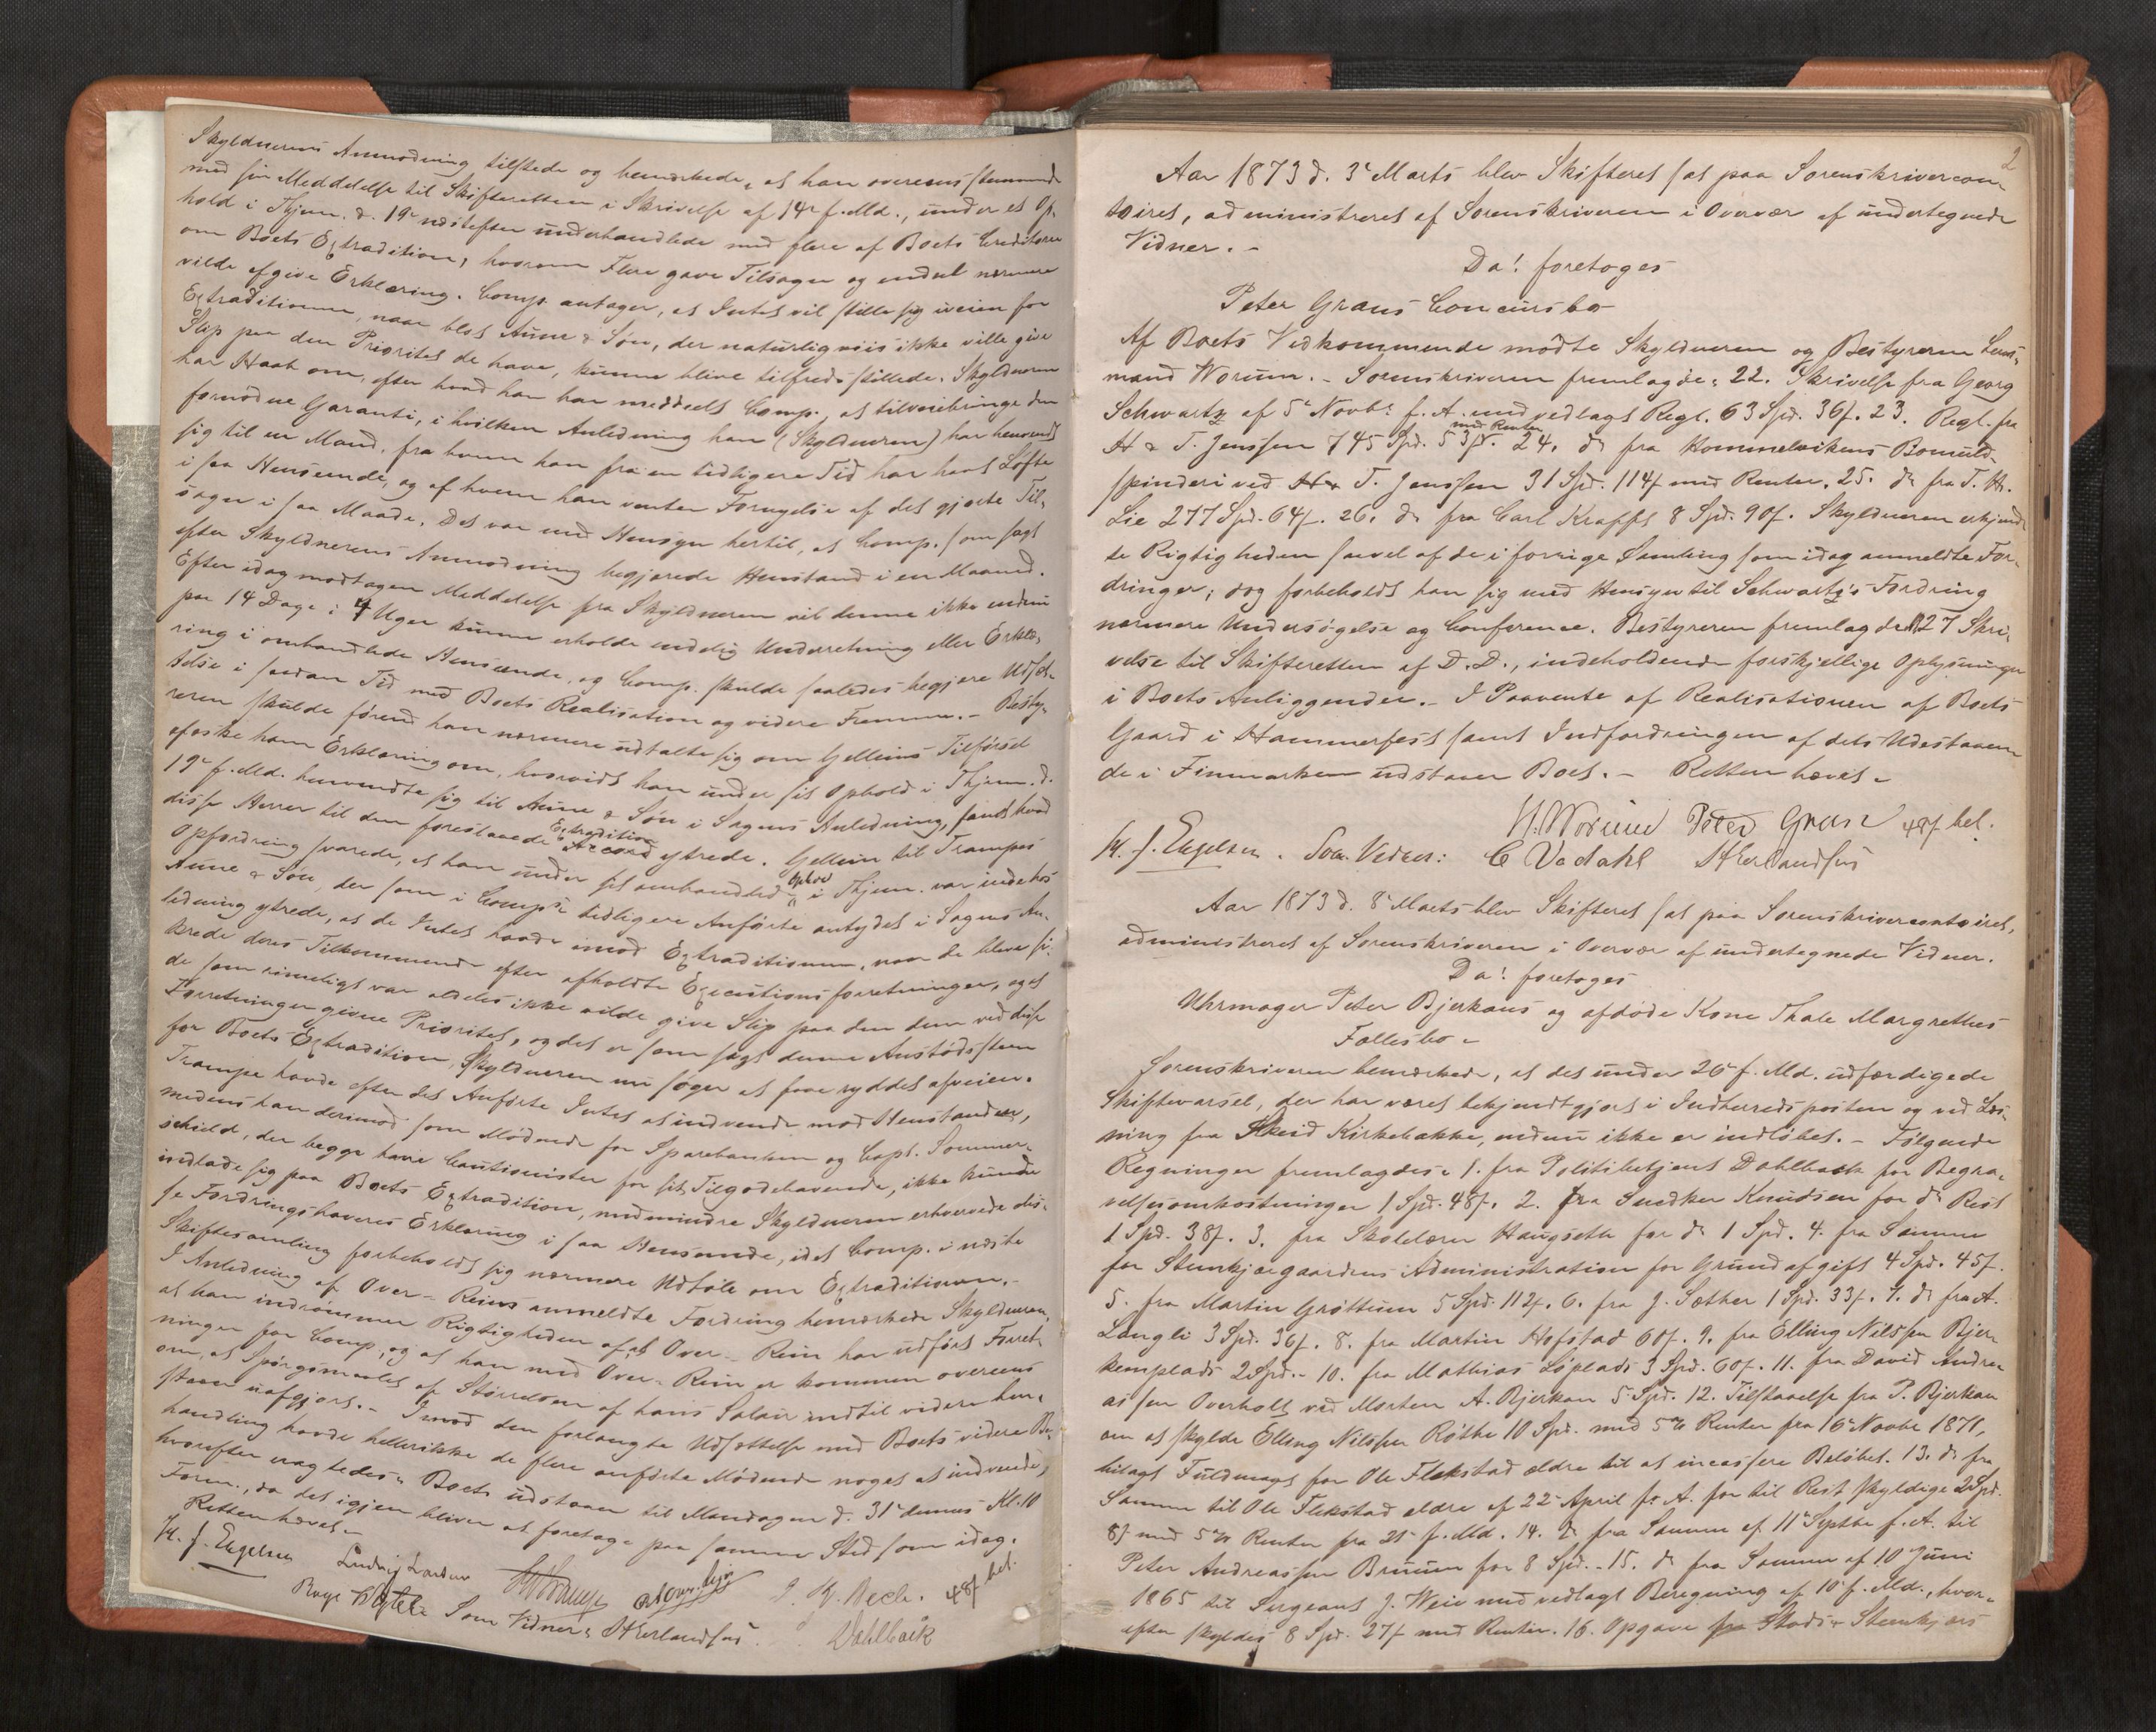 Skyldnerens Anmodning tilstede og bemærkede, at han overensstemmende
med sin Meddelelse til Skifteretten i Skrivelse af 14de f. Md., under et Op-
hold i Thjem. d. 19de næstefter underhandlede med flere af Boets Creditorer
om Boets Extradition, hvorom Flere gave Tilsagn og endeel nærmere
vilde afgive Erklæring. Comp. antager, at Intet vil stille sig iveien for
Extraditionen, naar blot Aune & Søn, der naturligviis ikke ville give
Slip paa den Prioritet de have, kunne blive tilfredsstillede. Skyldneren
har Haab om, efter hvad han har meddeelt Comp., at tilveiebringe den
fornødne Garanti, i hvilken Anledning han (Skyldneren) har henvendt
sig til en Mand, fra hvem han fra en tidligere Tid har havt Løfte
i saa Henseende, og af hvem han venter Fornyelse af det gjorte Til-
sagn i saa Maade. Det var med Hensyn hertil, at Comp. som sagt
efter Skyldnerens Anmodning begjærede Henstand i en Maaned.
Efter idag modtagen Meddelelse fra Skyldneren vil denne ikke endnu
paa 14 Dage i 4 Uger kunne erholde endelig Underretning eller Erklæ-
ring i omhandlede Henseende, og Comp. skulde saaledes begjære Udsæt-
telse i saadan Tid med Boets Realisation og videre Fremme. - Besty-
reren skulde førend han nærmere udtalte sig om Gelleins Tilførsel
afæske ham Erklæring om, hvorvidt han under sit Ophold i Thjem. d.
19de f. Md. henvendte sig til Aune & Søn i Sagens Anledning, samt hvad
disse Herrer til den foreslaaede Extradition Accord ytrede. Gellein til Trampes
Opfordring svarede, at han under sit omhandlede Ophold i Thjem. var inde hos
Aune & Søn, der som i Comps. tidligere Anførte antydet i Sagens An-
ledning ytrede, at de Intet havde imod Extraditionen, naar de bleve si-
krede deres Tilkommende efter afholdte Executionsforretninger, og at
de som rimeligt var aldeles ikke vilde give Slip paa den dem ved disse
Forretninger givne Prioritet, og det er som sagt denne Anstødssteen
for Boets Extradition, Skyldneren nu søger at faae ryddet afveien.
Trampe havde efter det Anførte Intet at indvende mod Henstanden,
medens han derimod som Mødende for Sparebanken og Capt. Sommer-
schield, der begge have Cautionister for sit Tilgodehavende, ikke kunde
indlade sig paa Boets Extradition, medmindre Skyldneren erhvervede dis-
se Fordringshaveres Erklæring i saa Henseende, idet Comp. i næste
Skiftesamling forbeholdt sig nærmere Udtale om Extraditionen.-
I Anledning af Over-Reins anmeldte Fordring bemærkede Skyldneren,
at han indrømmer Rigtigheden af, at Over-Rein har udført Forret-
ninger for Comp., og at han med Over-Rein er kommen overeens
om, at Spørgsmaalet af Størrelsen af hans Salair indtil videre hen-
staaer uafgjort. - Imod den forlangte Udsættelse med Boets videre Be-
handling havde hellerikke de flere anførte Mødende noget at indvende,
hvorefter eragtedes: Boet udstaaer til Mandagen d. 31te dennes Kl. 10
Form., da det igjen bliver at foretage paa samme Sted som idag.
Retten hævet.-
H. J. Engelsen Ludvig J. K. Bech. 48s bet.
Som Vidner: H Erlandsen Dahlback
2
Aar 1873 d. 3de Marts blev Skifteret sat paa Sorenskrivercon-
toiret, administreret af Sorenskriveren i Overvær af undertegnede
Vidner. -
Da! foretoges
Peter Grans Concursbo
Af Boets Vedkommende mødte Skyldneren og Bestyreren Lens-
mand Worum. - Sorenskriveren fremlagde: 22. Skrivelse fra Georg
Schwartz af 5te Novbr. f. A. med vedlagt Regl. 63 Spd. 36s. 23. Regl. fra
H & T. Jenssen 745 Spd. 53s. med Renter 24. do fra Hommelvikens Bomuld-
spinderi ved H & T. Jenssen 31 Spd. 114s med Renter. 25. do fra T. H.
Lie 277 Spd. 64s. 26. do fra Carl Krafft 8 Spd. 90s. Skyldneren erkjend-
te Rigtigheden saavel af de i forrige Samling som idag anmeldte For-
dringer, dog forbeholdt han sig med Hensyn til Schwartz's Fordring
nærmere Undersøgelse og Conference. Bestyreren fremlagde 27 Skri-
velse til Skifteretten af D. D., indeholdende forskjellige Oplysninger
i Boets Anliggender. - I Paavente af Realisationen af Boets
Gaard i Hammerfest samt Indfordringen af dets Udestaaen-
de i Finmarken udstaaer Boet. - Retten hævet.-
H. Worum Peter Gran 48s bet.
H. J. Engelsen. Som Vidner: C Vadahl H Erlandsen
Aar 1873 d. 8de Marts blev Skifteret sat paa Sorenskrivercontoiret,
administreret af Sorenskriveren i Overvær af undertegnede Vidner.
Da! foretoges
Uhrmager Peter Bjerkans og afdøde Kone Thale Margrethes
Fællesbo -
Sorenskriveren bemærkede, at det under 26de f. Md. udfærdigede
Skiftevarsel, der har været bekjendtgjort i Indherredsposten og ved Læs-
ning fra Skeid Kirkebakke, endnu ikke er indløbet. - Følgende
Regninger fremlagdes: 1. fra Politibetjent Dahlback for Begra-
velsesomkostninger 1 Spd. 48s. 2. fra Snedker Knudsen for do Rest
1 Spd. 38s. 3. fra Skolelærer Haugseth for do 1 Spd. 4. fra Samme
for Steinkjærgaardens Administration for Grundafgift 4 Spd. 45s.
5. fra Martin Grøttum 5 Spd. 112s. 6. fra J. Sæther 1 Spd. 33s. 7. do fra A.
Langli 3 Spd. 36s. 8. fra Martin Hofstad 60s. 9. fra Elling Nilssen Bjer-
kemplads 2 Spd. - 10. fra Mathias Løplads 3 Spd. 60s. 11. fra David Andre-
assen Overholt ved Morten A. Bjerkan 5 Spd. 12. Tilstaaelse fra P. Bjerkan
om at skylde Elling Nilssen Røthe 10 Spd. med 5% Renter fra 16de Novbr 1871,
bilagt Fuldmagt for Ole Flekstad ældre til at incassere Beløbet. 13. do fra
Samme til Ole Flekstad ældre af 22de April f. A. for til Rest skyldige 2 Spd.
8s med 5% Renter fra 21de f. Md. 14. do fra Samme af 11te Septbr f. A. til
Peter Andreassen Bruum for 8 Spd. - 15. do fra Samme af 10 Juni
1865 til Sergeant J. Weie med vedlagt Beregning af 10de f. Md., hvor-
efter skyldes 8 Spd. 27s med Renter. 16. Opgave fra Stods & Steinkjærs